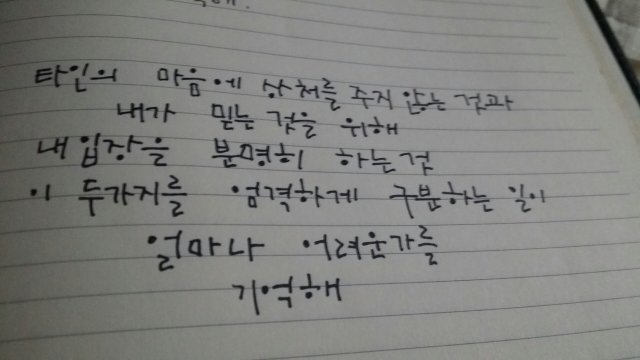 타인의 마음에 상처를 주지 않는 것과
내가 믿는 것을 위해
내 입장을 분명히 하는 것
이 두가지를 엄격하게 구분하는 일이
얼마나 어려운가를
기억해